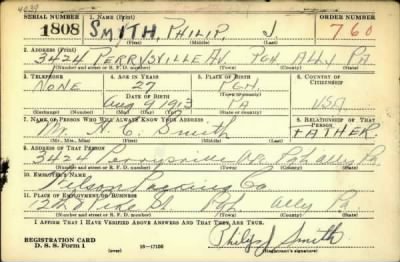 4039
SERIAL NUMBER 1. NAME (Print) ORDER NUMBER
1808 SMITH, PHILIP, J 760
(First) (Middle) (Last)
2. ADDRESS (Print)
3424 PERRYSVILLE AV PGH. ALLY PA.
(Number and street or R. F. D. number) (Town) (County) (State)
3. TELEPHONE 4. AGE IN YEARS 5. PLACE OF BIRTH 6. COUNTRY OF CITIZENSHIP
NONE 27 PGH.
DATE OF BIRTH (Town or county)
Aug 9 1913 PA USA
(Exchange) (Number) (Mo.) (Day) (Yr.) (State or country)
7. NAME OF PERSON WHO WILL ALWAYS KNOW YOUR ADDRESS 8. RELATIONSHIP OF THAT PERSON
Mr. H. C. Smith FATHER
(Mr., Mrs., Miss) (First) (Middle) (Last)
9. ADDRESS OF THAT PERSON
3424 Perrysville Ave Pgh Ally Pa.
(Number and street or R. F. D. number) (Town) (County) (State)
10. EMPLOYER'S NAME
Wilson Packing Co
11. PLACE OF EMPLOYMENT OR BUSINESS
Pike St. Pgh. Ally Pa.
(Number and street or R. F. D. number) (Town) (County) (State)
I AFFIRM THAT I HAVE VERIFIED ABOVE ANSWERS AND THAT THEY ARE TRUE.
REGISTRATION CARD
D. S. S. Form 1 (over) 16-17105 Philip J Smith
(Registrant's signature)